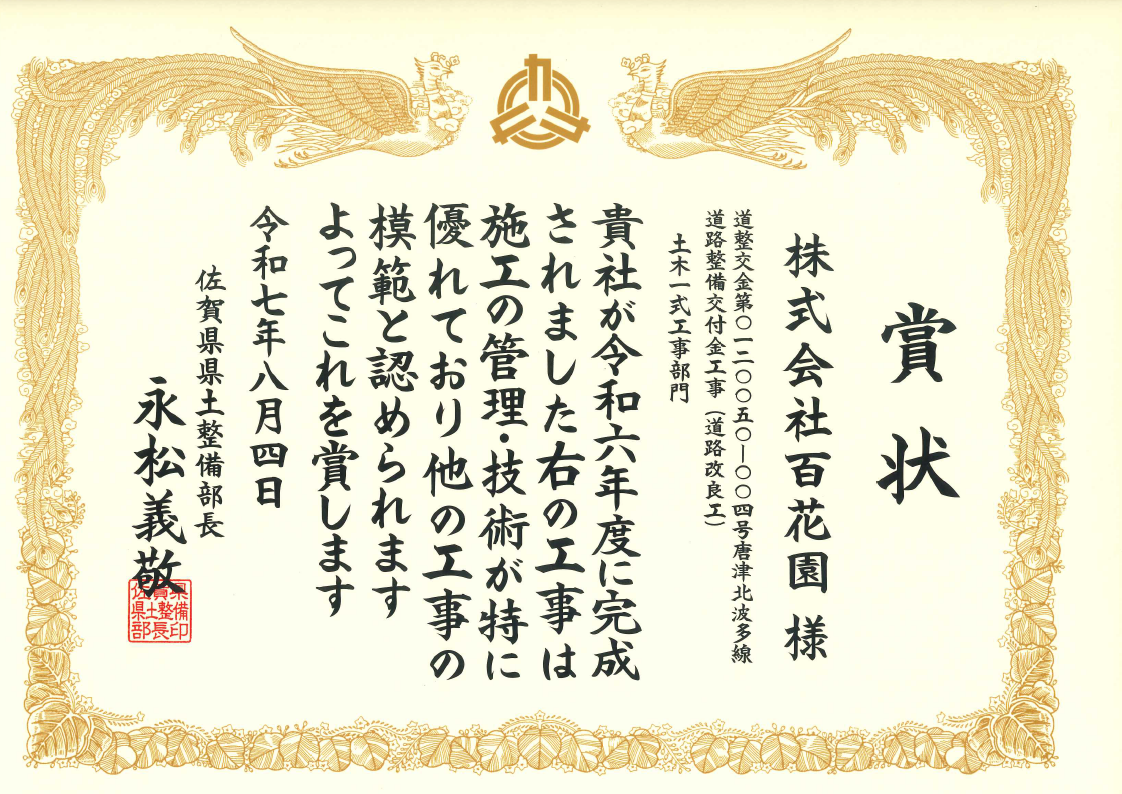 賞状
株式会社百花園 様
道整交金第〇一二〇〇五〇―〇〇四号唐津北波多線
道路整備交付金工事（道路改良工）
土木一式工事部門
貴社が令和六年度に完成
されました右の工事は
施工の管理・技術が特に
優れており他の工事の
模範と認められます
よってこれを賞します
令和七年八月四日
佐賀県県土整備部長
永松義敬
佐賀県
県土整備
部長印